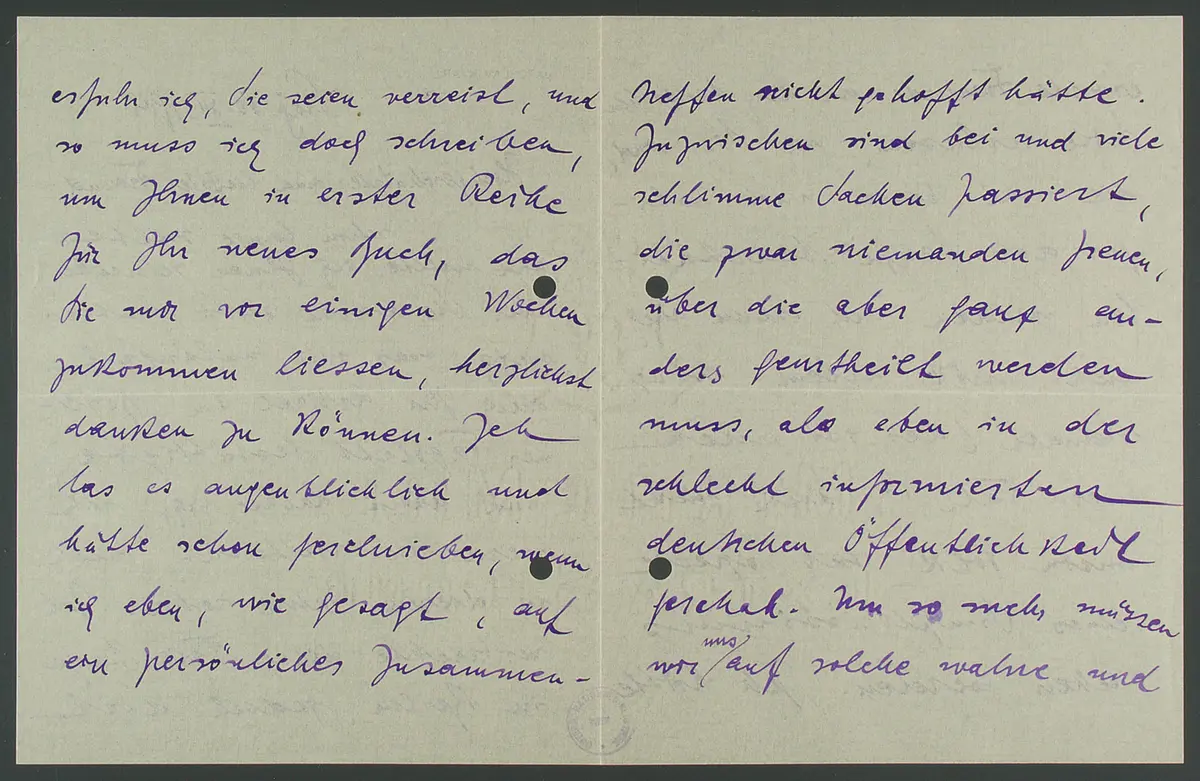 erfuhr ich, Sie seien verreist, und
so muss ich doch schreiben,
um Ihnen in erster Reihe
für Ihr neues Buch, das
Sie mir vor einigen Wochen
zukommen liessen, herzlichst
danken zu können. Ich
las es augenblicklich und
hätte schon geschrieben, wenn
ich eben, wie gesagt, auf
ein persönliches Zusammen-
treffen nicht gehofft hätte.
Inzwischen sind bei uns viele
schlimme Sachen passiert,
die zwar niemanden freuen,
über die aber ganz an-
ders geurtheilt werden
muss, als eben in der
schlecht informierten
deutschen Öffentlichkeit
geschah. Um so mehr müssen
wir uns auf solche wahre und